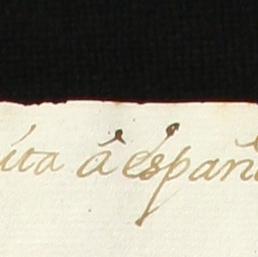 ita â españ